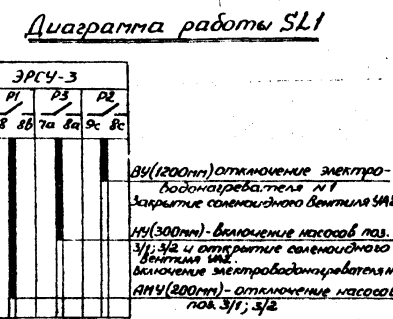 Диаграмма работы SL1
ЭРСУ-3
P1 P3 P2
8 8в 7а 8а 9с 8с
ВУ(1200мм) отключение электро-
водонагревателя №1
Закрытие соленоидного вентиля УА2
НУ(300мм)-включение насосов поз.
3/1; 3/2 и открытие соленоидного
вентиля УА2.
Включение электроводонагревателя
АНУ(200мм)- отключение насосов
поз. 3/1; 3/2